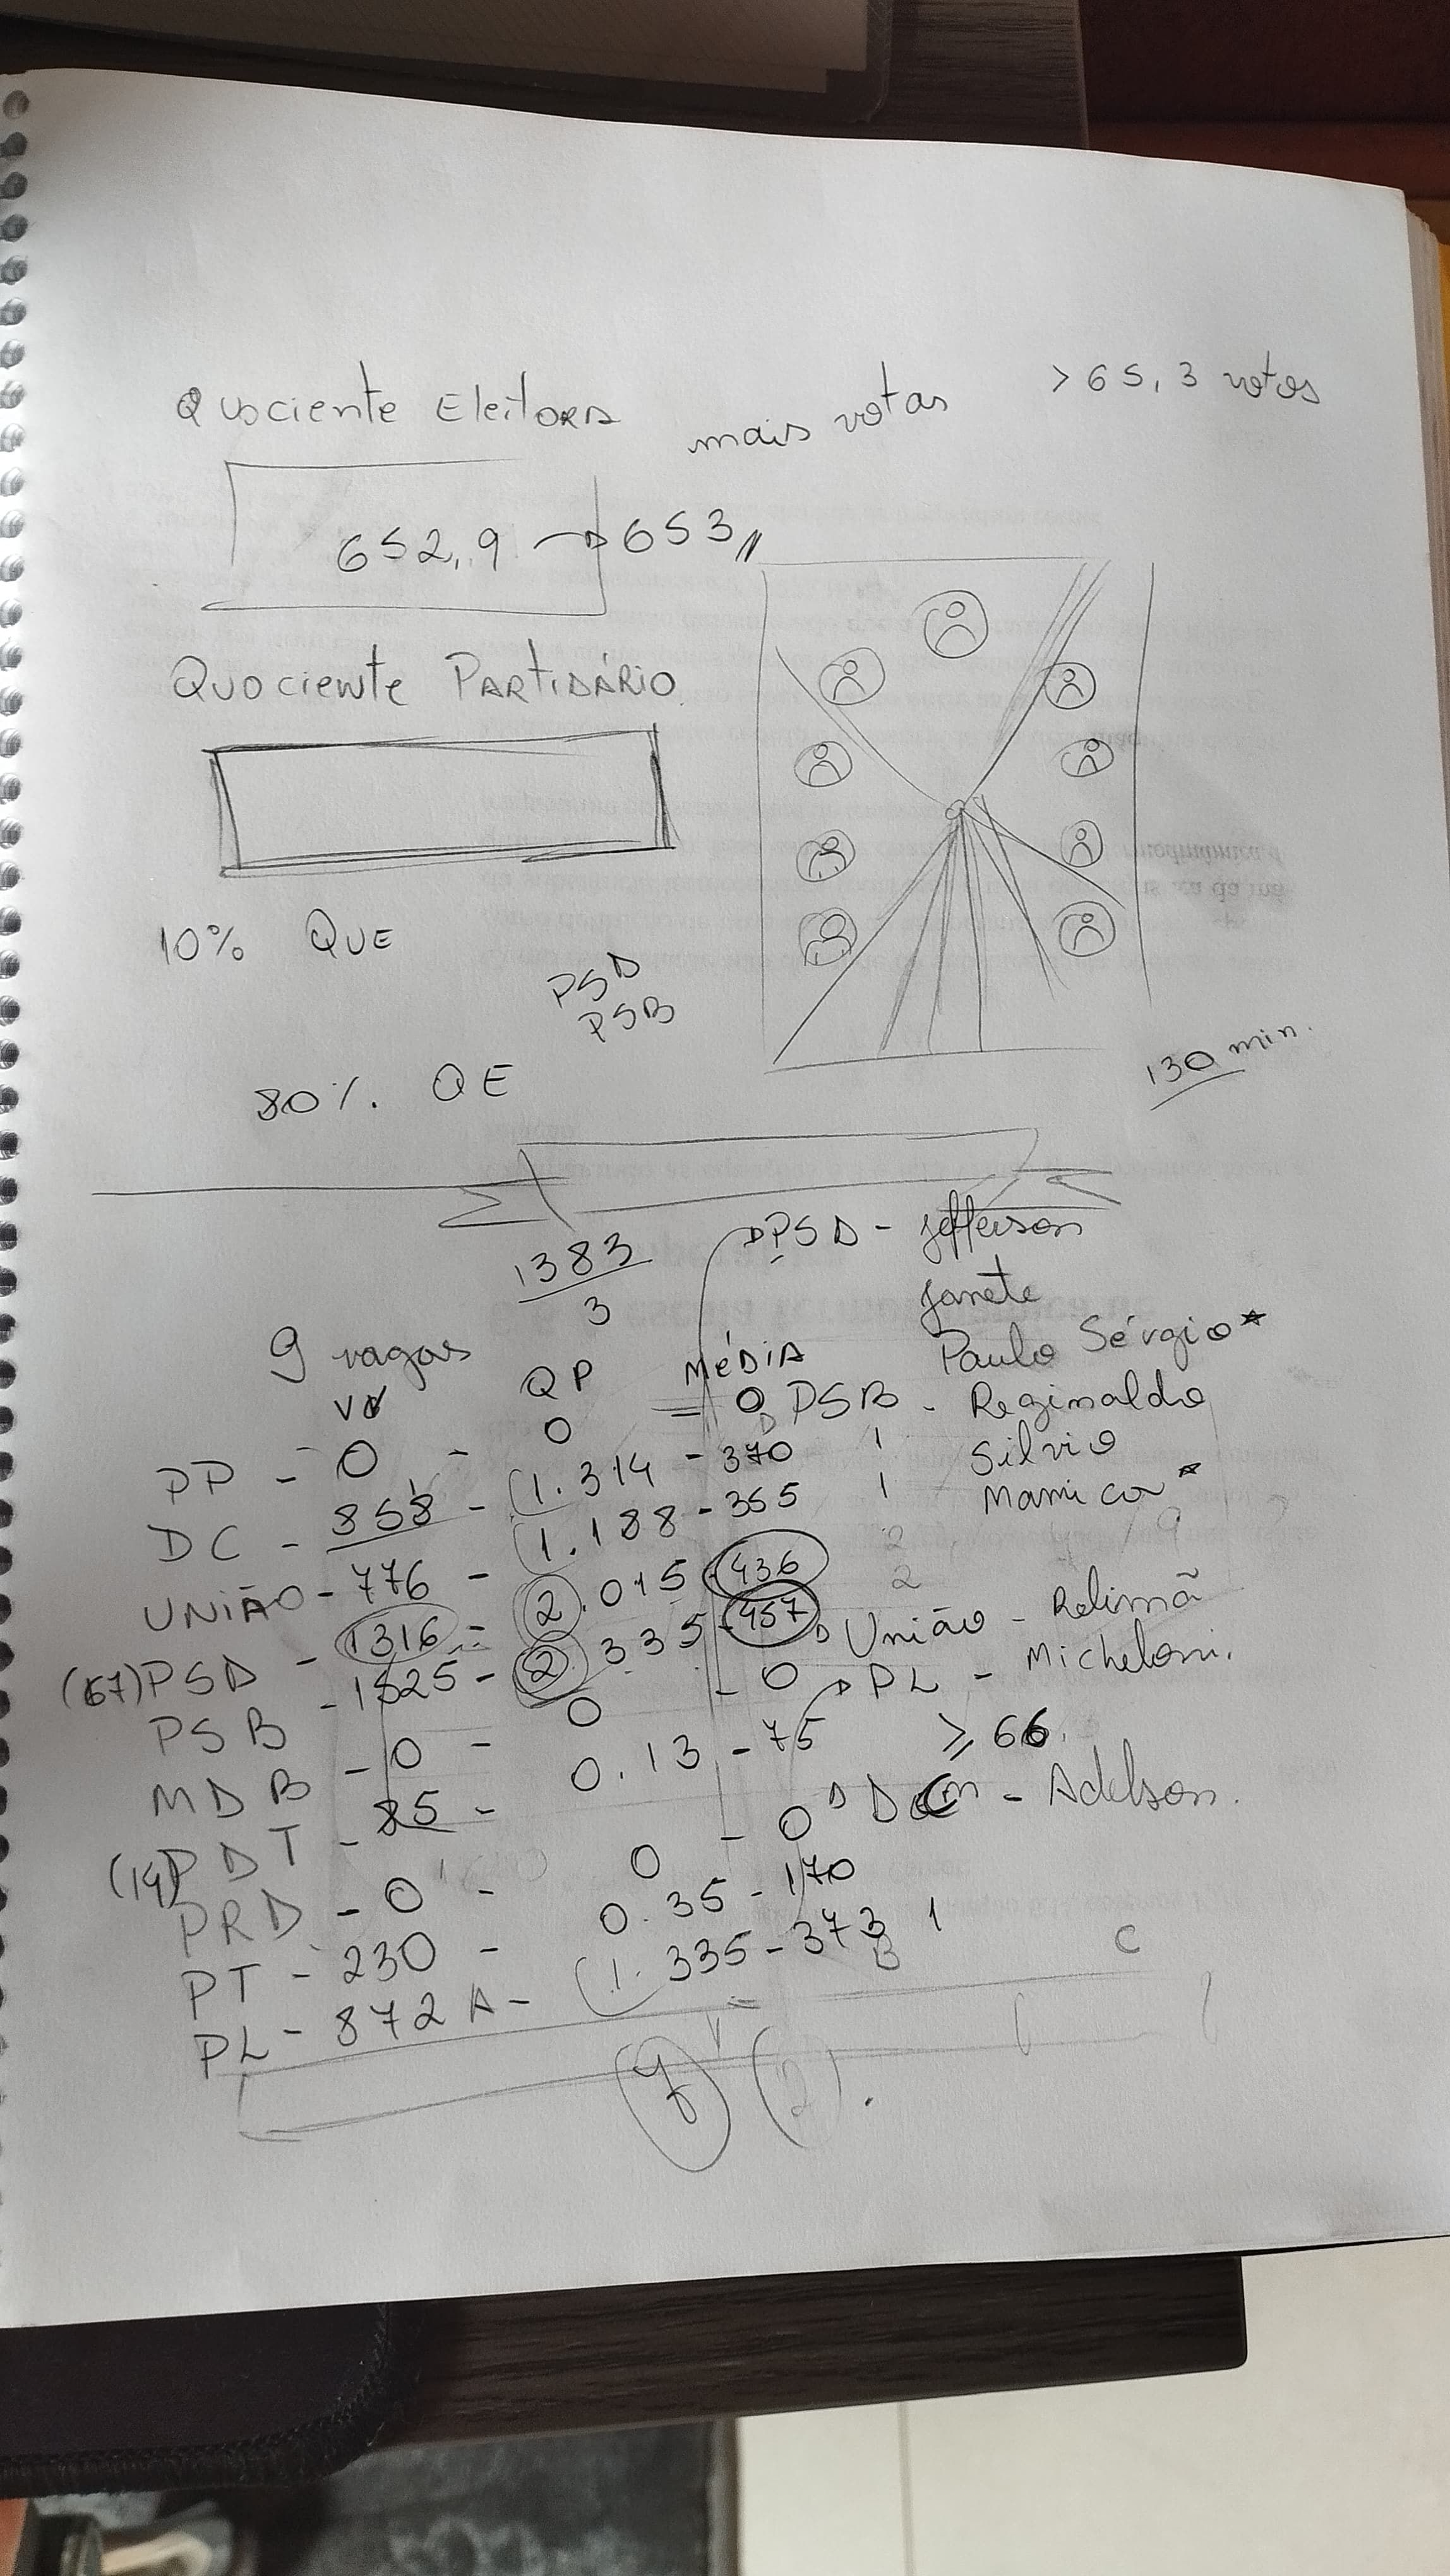 Quociente Eleitora mais votas > 65,3 votos
652,9 → 653
Quociente PARTIDÁRIO
10% QUE
PSD
PSB
80% QE
130 min.
1383
3
PSD - Jefferson
Janete
Paulo Sérgio*
PSB - Reginaldo
Silvio
Mamica*
União - Relimã
PL - Micheloni.
≥ 66
- Adelson.
9 vagas
VV QP MÉDIA
PP - 0 - 0 = 0
DC - 858 - 1.314 - 370 1
UNIÃO - 776 - 1.188 - 355 1
(67) PSD - 1316 - 2.015 - 436 2
PSB - 1525 - 2.335 - 457 2
MDB - 0 - 0 - 0
(14) PDT - 85 - 0.13 - 75
PRD - 0 - 0 - 0
PT - 230 - 0.35 - 170
PL - 872 A - 1.335 - 373 1
B
C
(2)